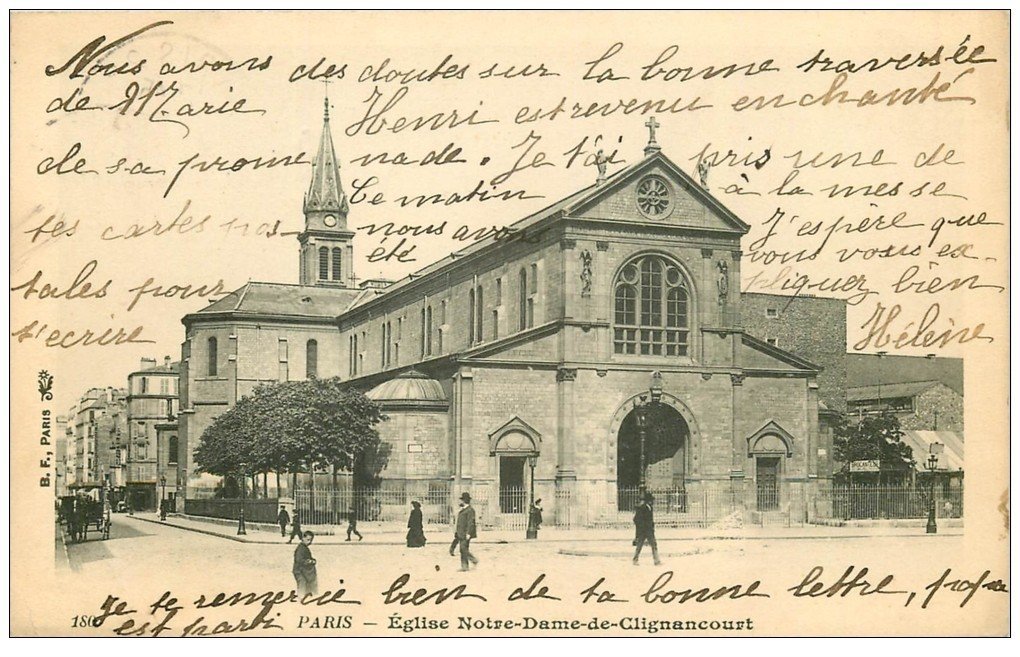 Nous avons des doutes sur la bonne traversée
de M. Marie Henri est revenu enchanté
de sa promenade. Je t'ai pris une de
tes cartes pos-
tales pour
s'ecrire
Ce matin
nous avons
été
à la messe
J'espère que
vous vous ex-
pliquez bien
Hélène
B. F., PARIS
Je te remercie bien de ta bonne lettre, papa
est parti
180 PARIS – Église Notre-Dame-de-Clignancourt